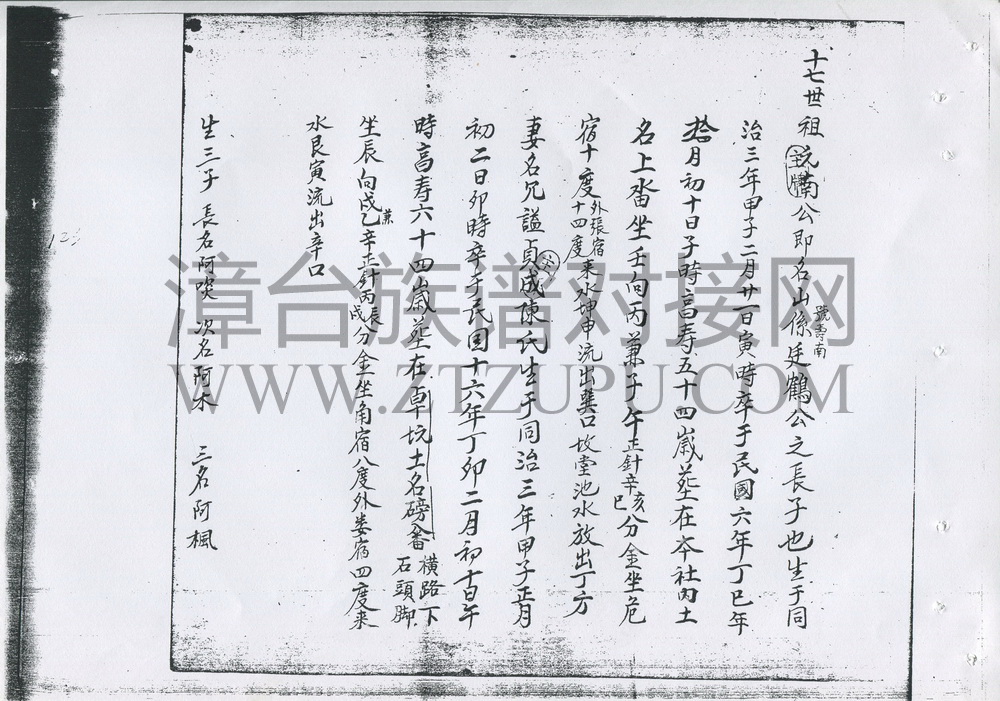 十七世祖 南公即名山係廷鶴公之長子也生于同
號壽南
治三年甲子二月廿一日寅時卒于民國六年丁巳年
拾月初十日子時高寿五十四嵗塟在本社内土
名上沓坐壬向丙兼子午正針辛亥巳分金坐危
宿十度外張宿十四度来水坤申流出巽口坟堂池水放出丁方
妻名兄謚貞成陳氏生于同治三年甲子正月
初二日卯時卒于民国十六年丁卯二月初十日午
時高寿六十四嵗塟在草坑土名磅畚横路下石頭脚
坐辰向戍兼乙辛正針丙辰戍分金坐角宿八度外娄宿四度来
水艮寅流出辛口
生三子 長名阿 次名阿木 三名阿楓
漳台族普对接网
WWW.ZTZUPU.COM